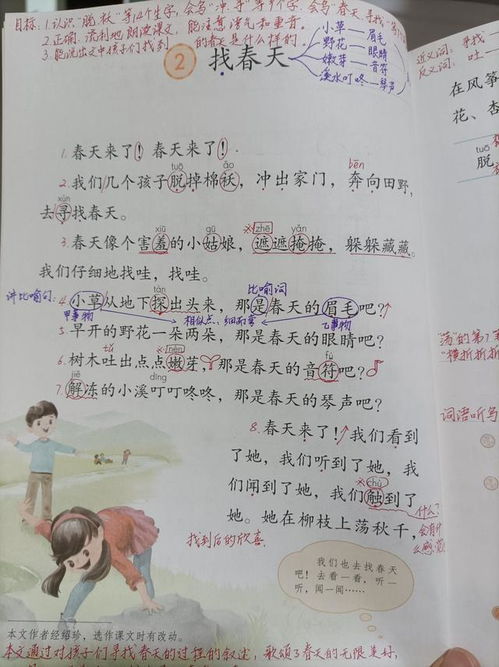 目标:1.认识"脱、袄"等14个生字,会写"冲、寻"等9个字,会写"春天、寻找"等
2.正确、流利地朗读课文。能注意语气和重音。
3.能说出文中孩子们找到的春天是什么样的。
2 找春天
小草——眉毛
野花——眼睛
嫩芽——音符
溪水叮咚——琴声
近义词:寻找—
反义词:吐—
在风筝
花、杏
脱
1.春天来了!春天来了!
tuō ǎo bēn
2.我们几个孩子脱掉棉袄,冲出家门,奔向田野,
xún
去寻找春天。
xiū gū zhē yǎn
3.春天像个害羞的小姑娘,遮遮掩掩,躲躲藏藏。
我们仔细地找哇,找哇。
讲比喻句: tàn 比喻词
4.小草从地下探出头来,那是春天的眉毛吧?
甲事物 相似点:细而弯 乙事物
5.早开的野花一朵两朵,那是春天的眼睛吧?
tǔ nèn fú
6.树木吐出点点嫩芽,那是春天的音符吧?
jiě dīng
7.解冻的小溪叮叮咚咚,那是春天的琴声吧?
"横折折折
词语听写
8.春天来了!我们看到
了她,我们听到了她,我
chù
们闻到了她,我们触到了
她。她在柳枝上荡秋千,
什么?
会有什
么感觉
找到后的欣喜
我们也去找春天
吧!去看一看,听一
听,闻一闻……
本文作者经绍珍,选作课文时有改动。
本文通过对孩子们寻找春天的过程的叙述,歌颂了春天的无限美好,